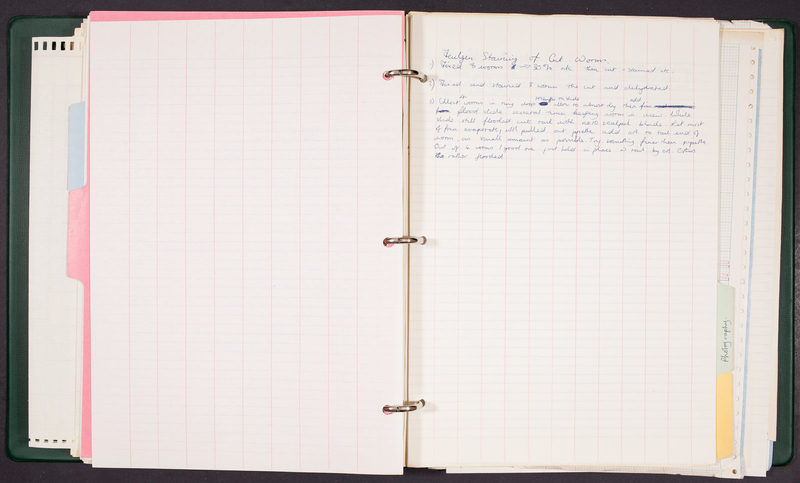 Feulgen Staining of Cut Worms.
1) Fixed 8 worms → 30% alc then cut + stained etc.
2) Fixed and stained 8 worms then cut and dehydrated
3) worms in tiny drop on slide allow to almost dry then add
flood slide several times keeping worm in view. While
slide still flooded cut with no 10 scalpel blade. Let most
of evaporate, pulled out pipette add to cut end of
worm, as small amount as possible. Try something finer than pipette
Out of 4 worms 1 good one just held in place by Others
rather flooded
Photography